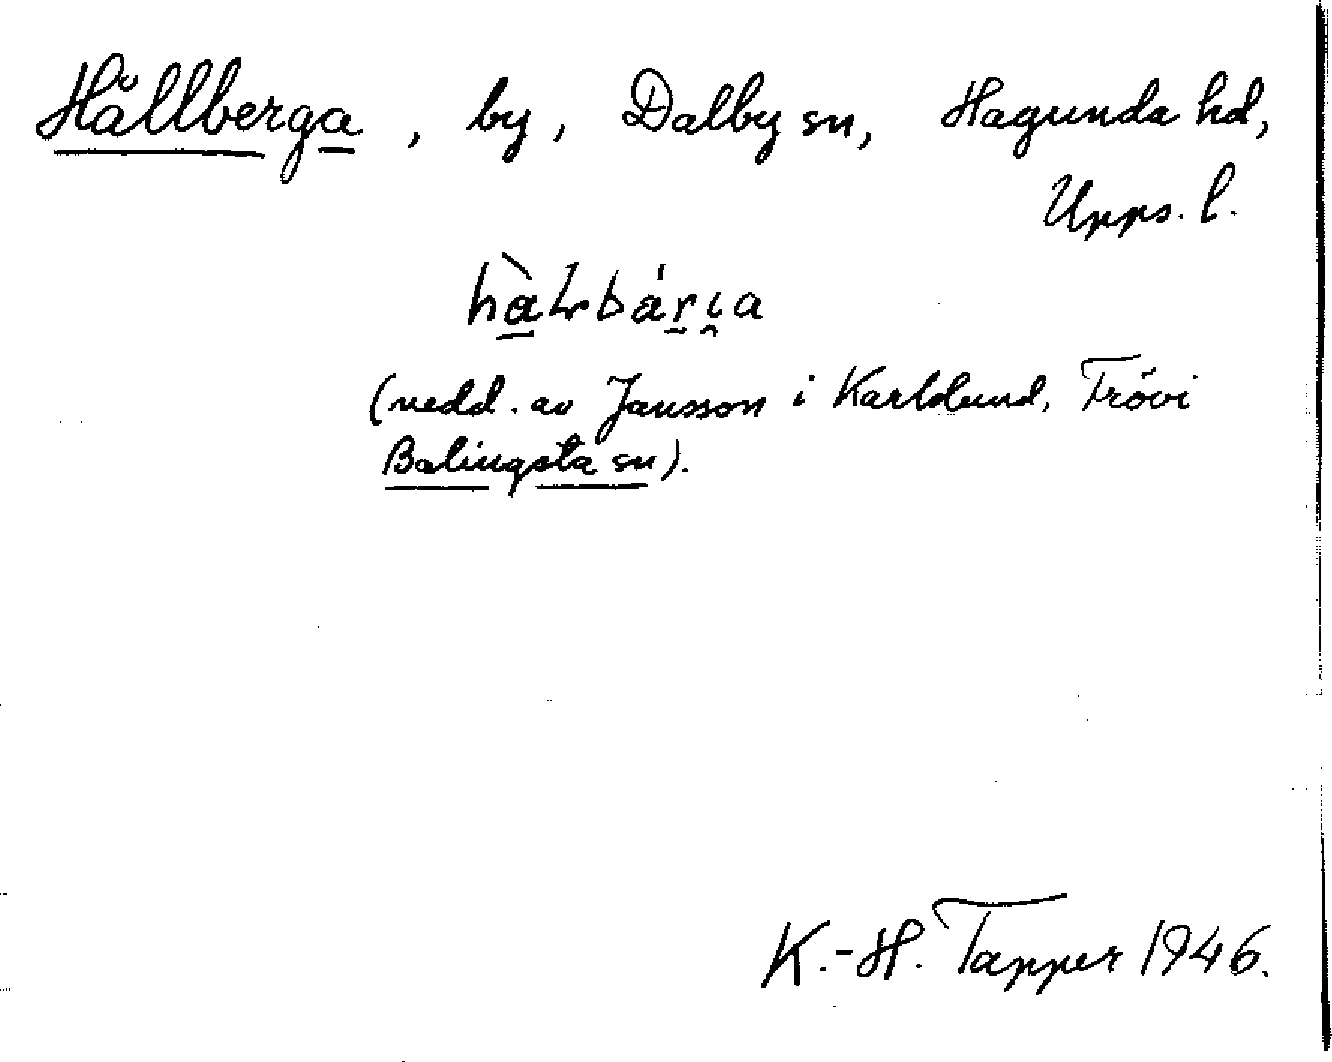 Hällberga, by, Dalby sn, Hagunda hd,
Upps. l.
(medd. av Jansson i Karlslund, Frövi
Balingsta sn).
K.-H. Tapper 1946.